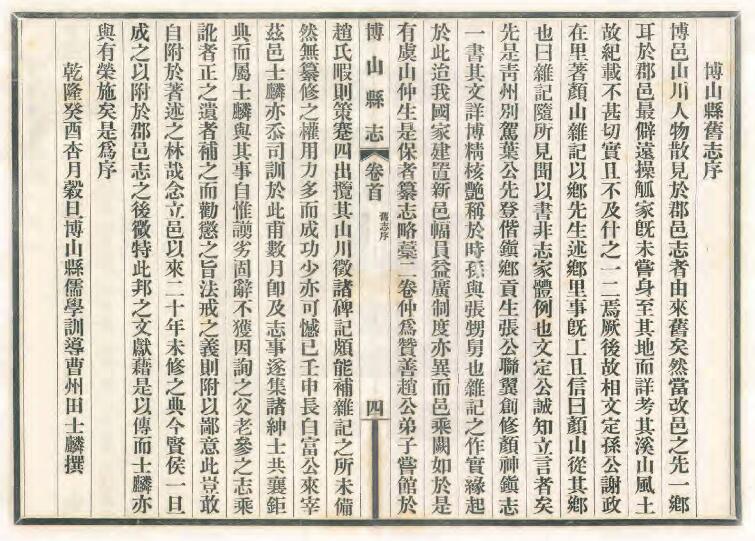 博山縣舊志序
博邑山川人物散見於郡邑志者由來舊矣然當改邑之先一鄉
耳於郡邑最僻遠操觚家旣未嘗身至其地而詳考其溪山風土
故紀載不甚切實且不及什之一二焉厥後故相文定孫公謝政
在里著顏山雜記以鄉先生述鄉里事旣工且信曰顏山從其鄉
也曰雜記隨所見聞以書非志家體例也文定公誠知立言者矣
先是靑州別駕葉公先登偕鎭鄉貢生張公聯翼創修顏神鎭志
一書其文詳博精核艷稱於時孫與張甥舅也雜記之作實緣起
於此造我國家建置新邑幅員益廣制度亦異而邑乘闕如於是
有虞山仲生是保者纂志略藁二卷仲爲贊善趙公弟子嘗館於
博山縣志
卷首
舊志序
四
趙氏暇則策蹇四出攬其山川徵諸碑記頗能補雜記之所未備
然無纂修之權用力多而成功少亦可憾已壬申長白富公來宰
茲邑士麟亦忝司訓於此甫數月卽及志事遂集諸紳士共襄鉅
典而屬士麟與其事自惟譾劣固辭不獲因詢之父老參之志乘
訛者正之遺者補之而勸懲之旨法戒之義則附以鄙意此豈敢
自附於著述之林哉念立邑以來二十年未修之典今賢侯一旦
成之以附於郡邑志之後徵特此邦之文獻藉是以傳而士麟亦
與有榮施矣是爲序
乾隆癸酉杏月穀旦博山縣儒學訓導曹州田士麟撰